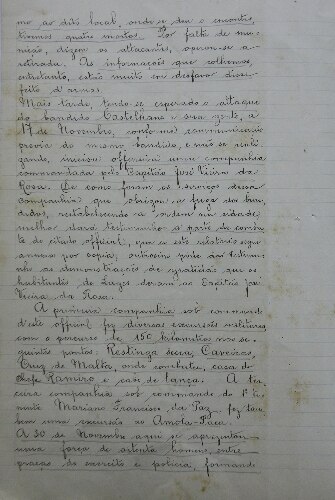 mo ao dito local, onde se deu o encontro,
tivemos quatro mortos. Por falta de mu-
nição, dizem os atacantes, operou-se a
retirada. As informações que colhemos,
entretanto, estão muito em desfavor desse
feito d'armas.
Mais tarde, tendo-se esperado o attaque
do bandido Castelhano e sua gente, a
17 de Novembro, conforme communicação
previa do mesmo bandido, e não se reali-
zando,
commandada pelo Capitão José Vieira da
Rosa. De como foram os serviços dessa
companhia que obrigou a fuga dos ban-
didos, restabelecendo a ordem na cidade,
melhor dará testemunho a parte de comba-
te do citado official, que a este relatorio aqui
annexo por copia; outrosim
são as demonstrações de gratidão que os
habitantes de Lages deram ao Capitão José
Vieira da Rosa.
A primeira companhia sob commando
d'este official fez diversas excursões militares
com o percurso de 150 kilometros nos se-
guintes pontos: Restinga Secca, Caveiras,
Cruz de Malta, onde combateu, casa do
chefe Ramiro e casa de Lança. A ter-
ceira companhia sob commando do 1º te-
nente Mariano Francisco da Paz, fez tam-
bem uma excursão ao Amola-Faca.
A 30 de Novembro aqui se apresentou
uma força de oitenta homens, entre
praças do exercito e policia, formando